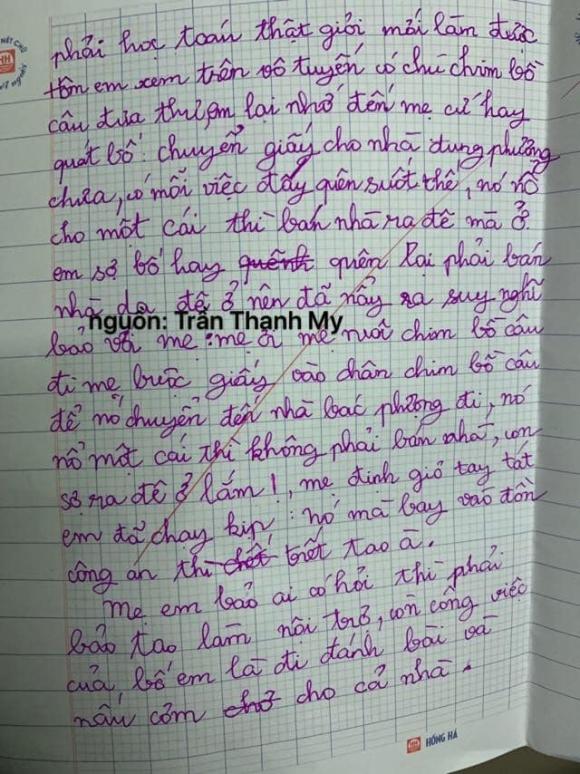 phải học toán thật giỏi mới làm được
hôm em xem trên vô tuyến có chú chim bồ
câu đưa thư, em lại nhớ đến mẹ cứ hay
quát bố: chuyển giấy cho nhà dung phường
chưa, có mỗi việc đấy quên suốt thế, nó nổ
cho một cái thì bán nhà ra đê mà ở.
em sợ bố hay quên lại phải bán
nhà da đê ở nên đã nảy ra suy nghĩ
nguồn: Trần Thanh My
bảo với mẹ: mẹ ơi mẹ nuôi chim bồ câu
đi mẹ buộc giấy vào chân chim bồ câu
để nó chuyển đến nhà bác phường đi, nó
nổ một cái thì không phải bán nhà, con
sợ ra đê ở lắm!, mẹ định giơ tay tát
em đã chạy kịp: nó mà bay vào đồn
công an thì chết tao à.
Mẹ em bảo ai có hỏi thì phải
bảo tao làm nội trợ, còn công việc
của bố em là đi đánh bài và
nấu cơm cho cả nhà.
HH HỒNG HÀ
NÉT CHỮ
HH